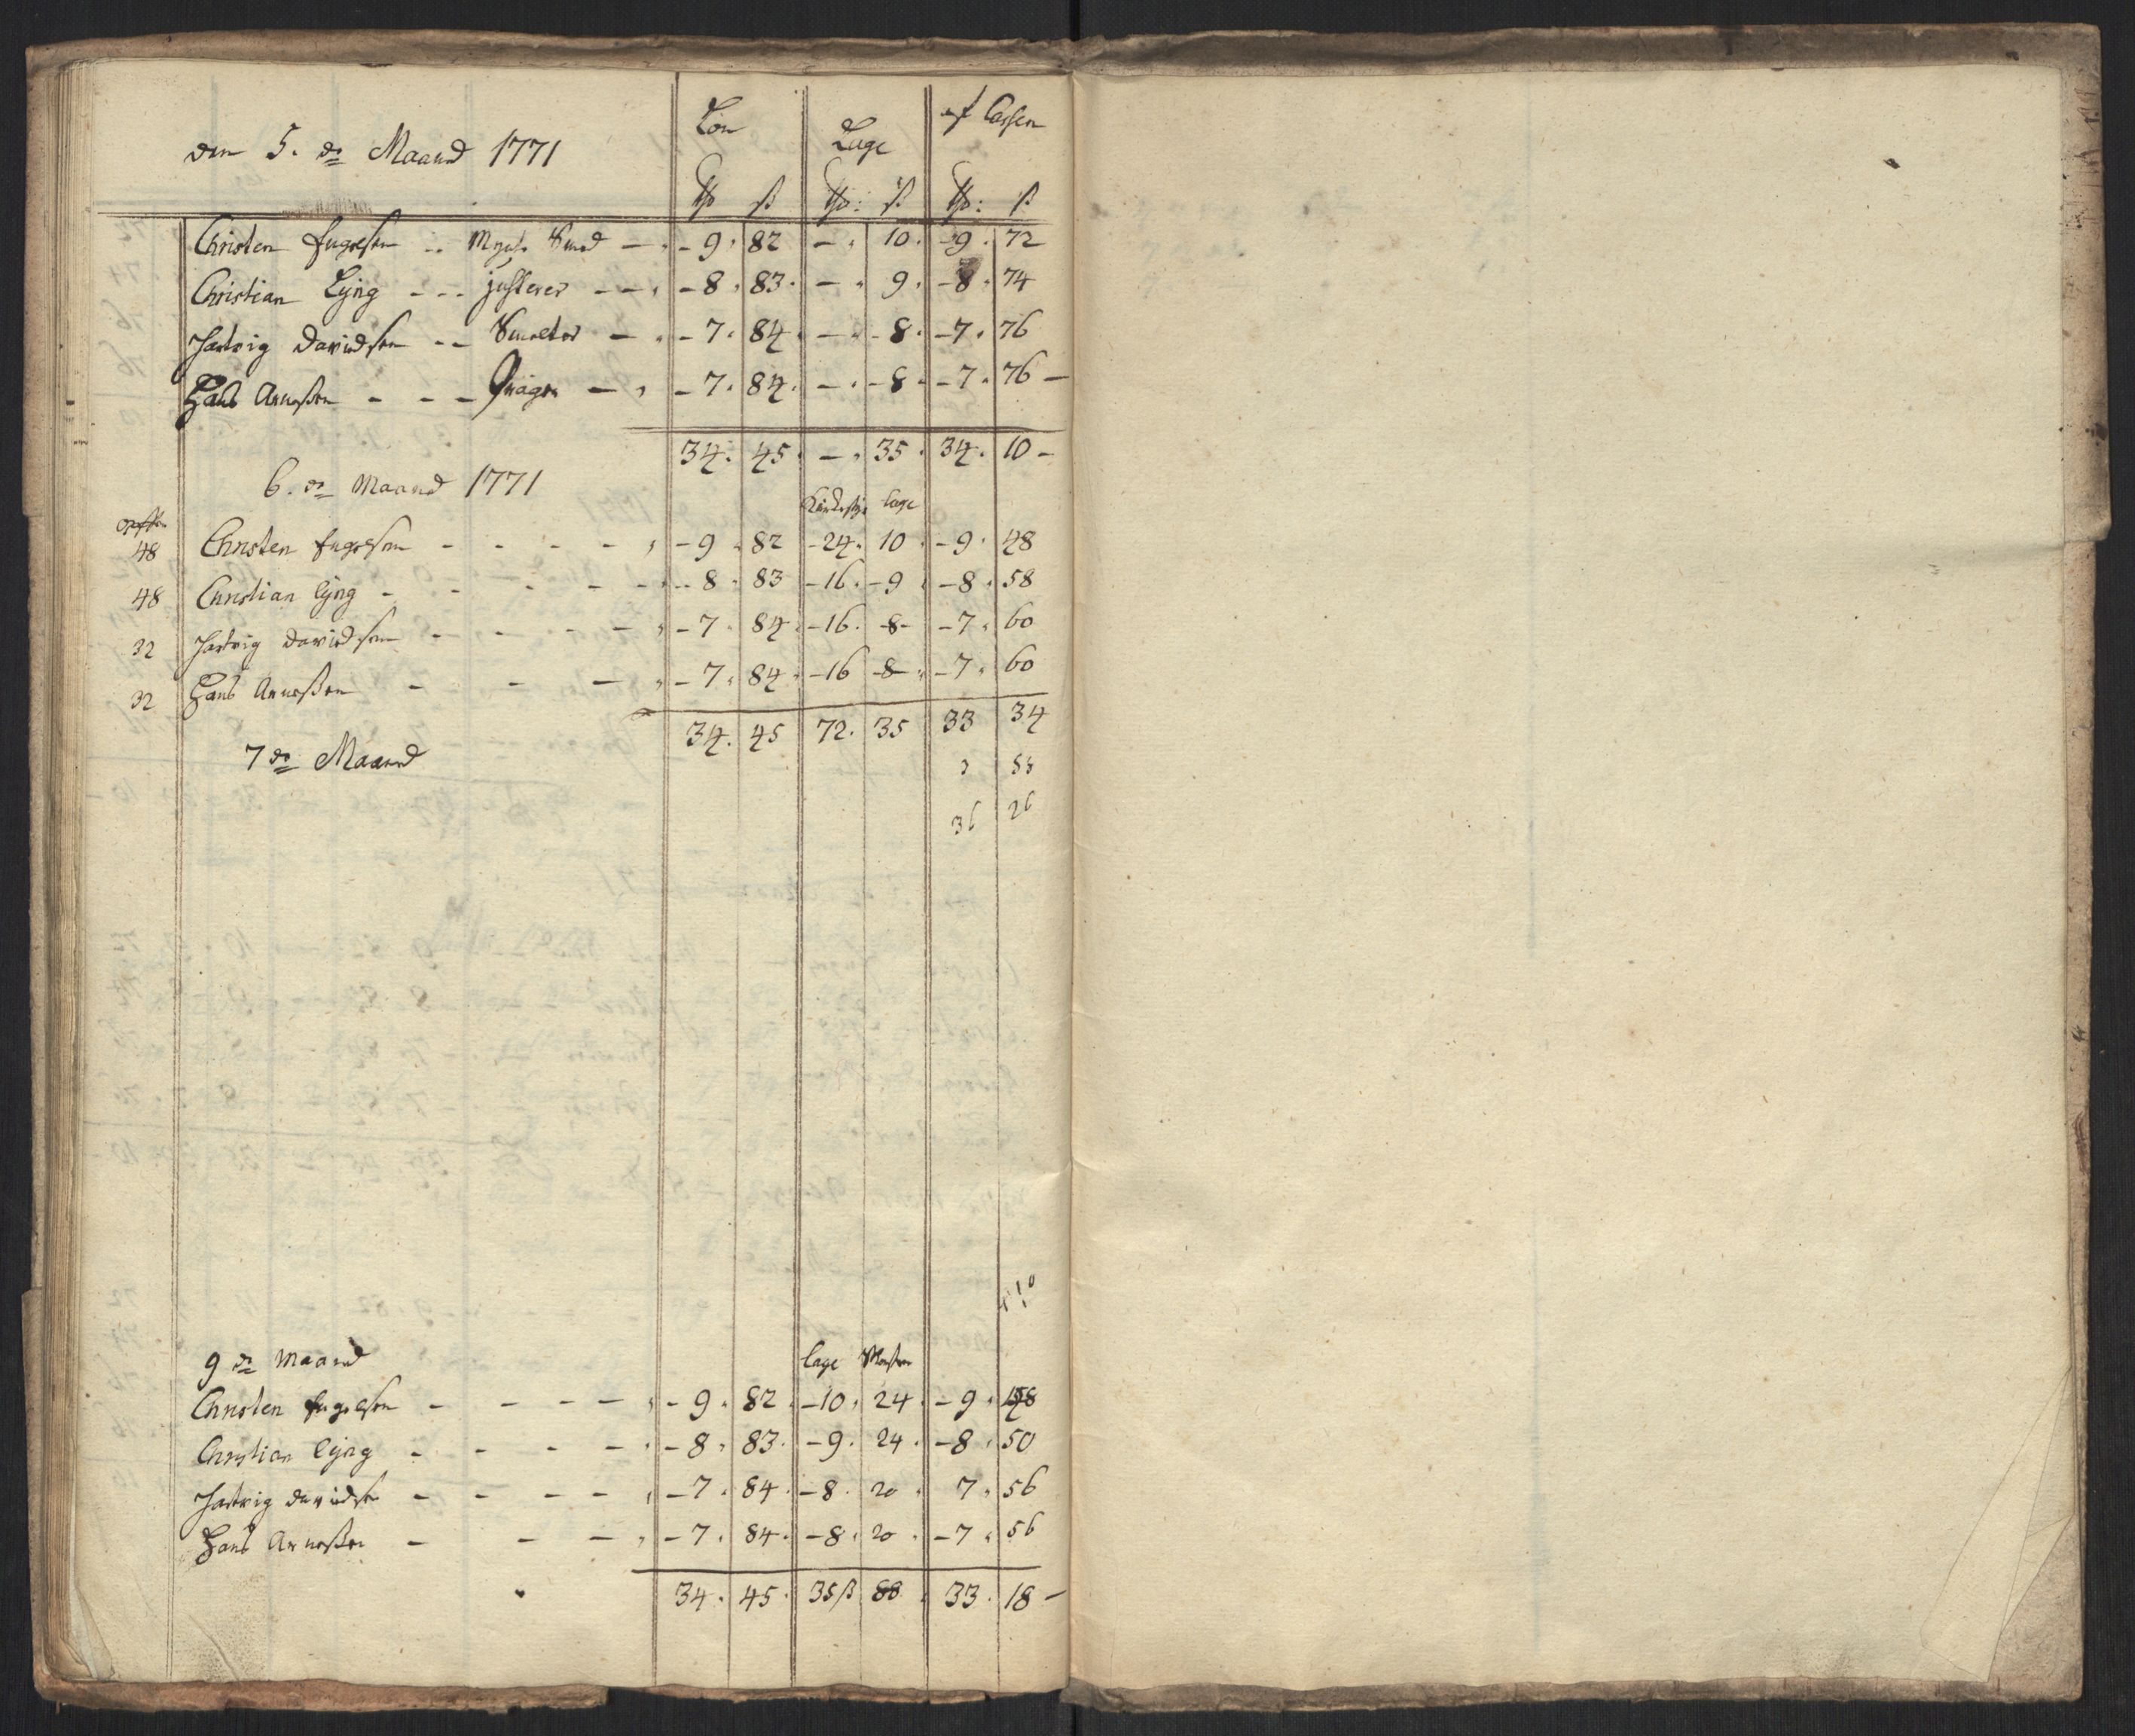 Løn Lage af Cassen
den 5. de Maaned 1771
ß ß ß
Christen Engelsen Mynt Smed - 9. 82 - 10. - 9. 72
Christian Lyng justerer - 8. 83. - 9. - 8. 74
Hartvig Davidsen Smelter - 7. 84. - 8. - 7. 76
Hans Arnesen - 7. 84. - 8. - 7. 76 -
34. 45. - 35. 34. 10 -
6. de Maaned 1771
lage
48 Christen Engelsen - 9. 82 - 24. 10. - 9. 48
48 Christian Lyng - 8. 83 - 16. - 9. - 8. 58
32 Hartvig Davidsen - 7. 84. - 16. 8 - - 7. 60
32 Hans Arnesen - 7. 84. - 16 - 8 - 7. 60
34. 45 72. 35 33 34
7 de Maaned
36 26
9 de Maaned lage
Christen Engelsen - 9. 82. - 10. 24. - 9. 48
Christian Lyng - 8. 83. - 9. 24. - 8. 50
Hartvig Davidsen - 7. 84. - 8. 20. 7. 56
Hans Arnesen - 7. 84. - 8. 20. - 7. 56
34. 45. 35 ß 88. 33. 18 -